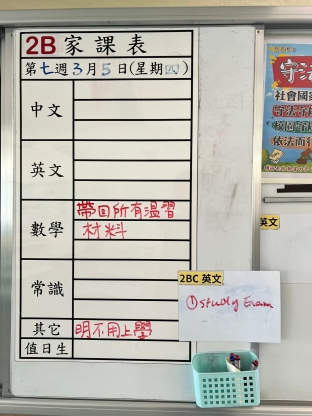 2B 家課表
第七週3月5日(星期四)
中文
英文
數學
帶回所有溫習
材料
常識
其它
明不用上學
值日生
2BC 英文
①study Exam
英文
守法
社會國
依法而行